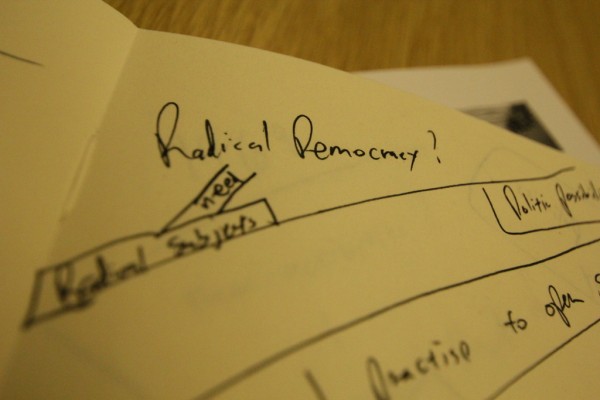 Radical Democracy?
need
Radical Subjects
Politic
Practise to open